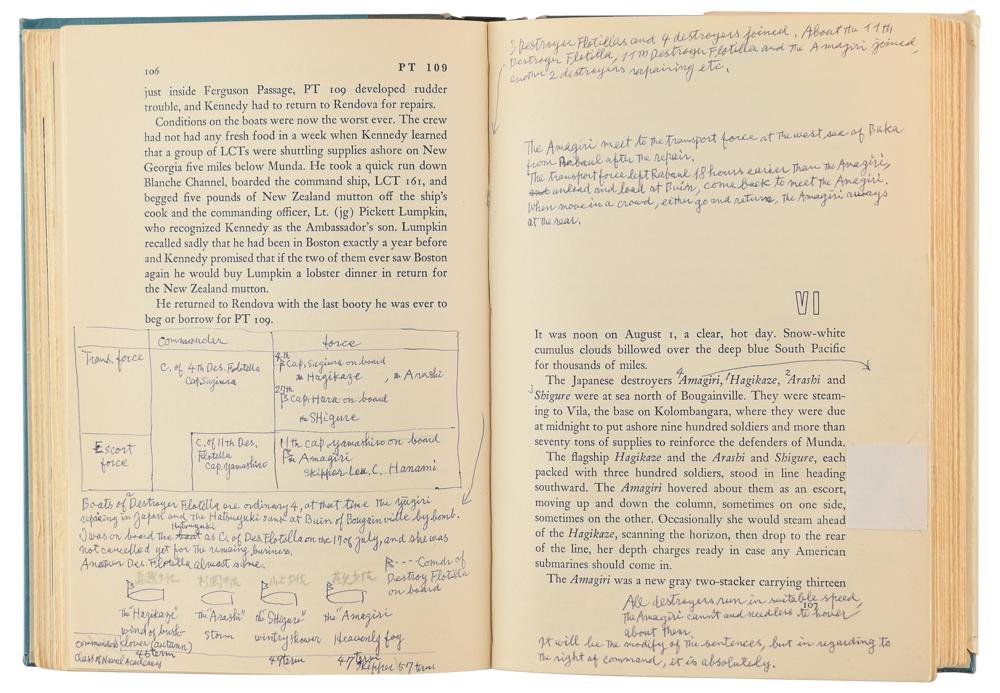 106
PT 109
just inside Ferguson Passage, PT 109 developed rudder
trouble, and Kennedy had to return to Rendova for repairs.
Conditions on the boats were now the worst ever. The crew
had not had any fresh food in a week when Kennedy learned
that a group of LCTs were shuttling supplies ashore on New
Georgia five miles below Munda. He took a quick run down
Blanche Channel, boarded the command ship, LCT 161, and
begged five pounds of New Zealand mutton off the ship's
cook and the commanding officer, Lt. (jg) Pickett Lumpkin,
who recognized Kennedy as the Ambassador's son. Lumpkin
recalled sadly that he had been in Boston exactly a year before
and Kennedy promised that if the two of them ever saw Boston
again he would buy Lumpkin a lobster dinner in return for
the New Zealand mutton.
He returned to Rendova with the last booty he was ever to
beg or borrow for PT 109.
commander
force
Trans. force
C. of 4th Des. Flotilla
Cap. Sugiura
4th
Cap. Sugiura on board
Hagikaze , Arashi
27th
Cap. Hara on board
the SHigure
Escort
force
C. of 11th Des.
Flotilla
Cap. Yamashiro
11th cap. Yamashiro on board
Amagiri
Skipper C. Hanami
Boats of a Destroyer Flotilla are ordinary 4, at that time the Yugiri
repairing in Japan and the Hatsuyuki sank at Buin of Bougainville by bomb.
Hatsuyuki
I was on board the as C. of Des Flotilla on the 17 of july, and she was
not cancelled yet for the remaing business.
Another Des. Flotilla almost same.
--- Comdr of
Destroy Flotilla
on board
the "Hagikaze"
wind of bush
clover (autumn)
46 term
the "Arashi"
storm
the "SHigure"
wintry shower
49 term
the "Amagiri"
Heavenly fog
47 term
Skipper 57 term
commanders
class of Naval Academy
3 Destroyer Flotillas and 4 destroyers joined. About the 11th
Destroyer Flotilla, 11th Destroyer Flotilla and the Amagiri joined,
another 2 destroyers repairing etc.
The Amagiri meet to the transport force at the west sea of Buka
from Rabaul after the repair.
The transport force left Rabaul 18 hours earlier than the Amagiri,
unload and load at Buin, come back to meet the Amagiri.
When move in a crowd, either go and return, the Amagiri always
at the rear.
VI
It was noon on August 1, a clear, hot day. Snow-white
cumulus clouds billowed over the deep blue South Pacific
for thousands of miles.
The Japanese destroyers 4 Amagiri, 1 Hagikaze, 2 Arashi and
3 Shigure were at sea north of Bougainville. They were steam-
ing to Vila, the base on Kolombangara, where they were due
at midnight to put ashore nine hundred soldiers and more than
seventy tons of supplies to reinforce the defenders of Munda.
The flagship Hagikaze and the Arashi and Shigure, each
packed with three hundred soldiers, stood in line heading
southward. The Amagiri hovered about them as an escort,
moving up and down the column, sometimes on one side,
sometimes on the other. Occasionally she would steam ahead
of the Hagikaze, scanning the horizon, then drop to the rear
of the line, her depth charges ready in case any American
submarines should come in.
The Amagiri was a new gray two-stacker carrying thirteen
107
All destroyers run in suitable speed,
the Amagiri cannot and needless to hover
about them.
It will be the modify of the sentences, but in regarding to
the right of command, it is absolutely.